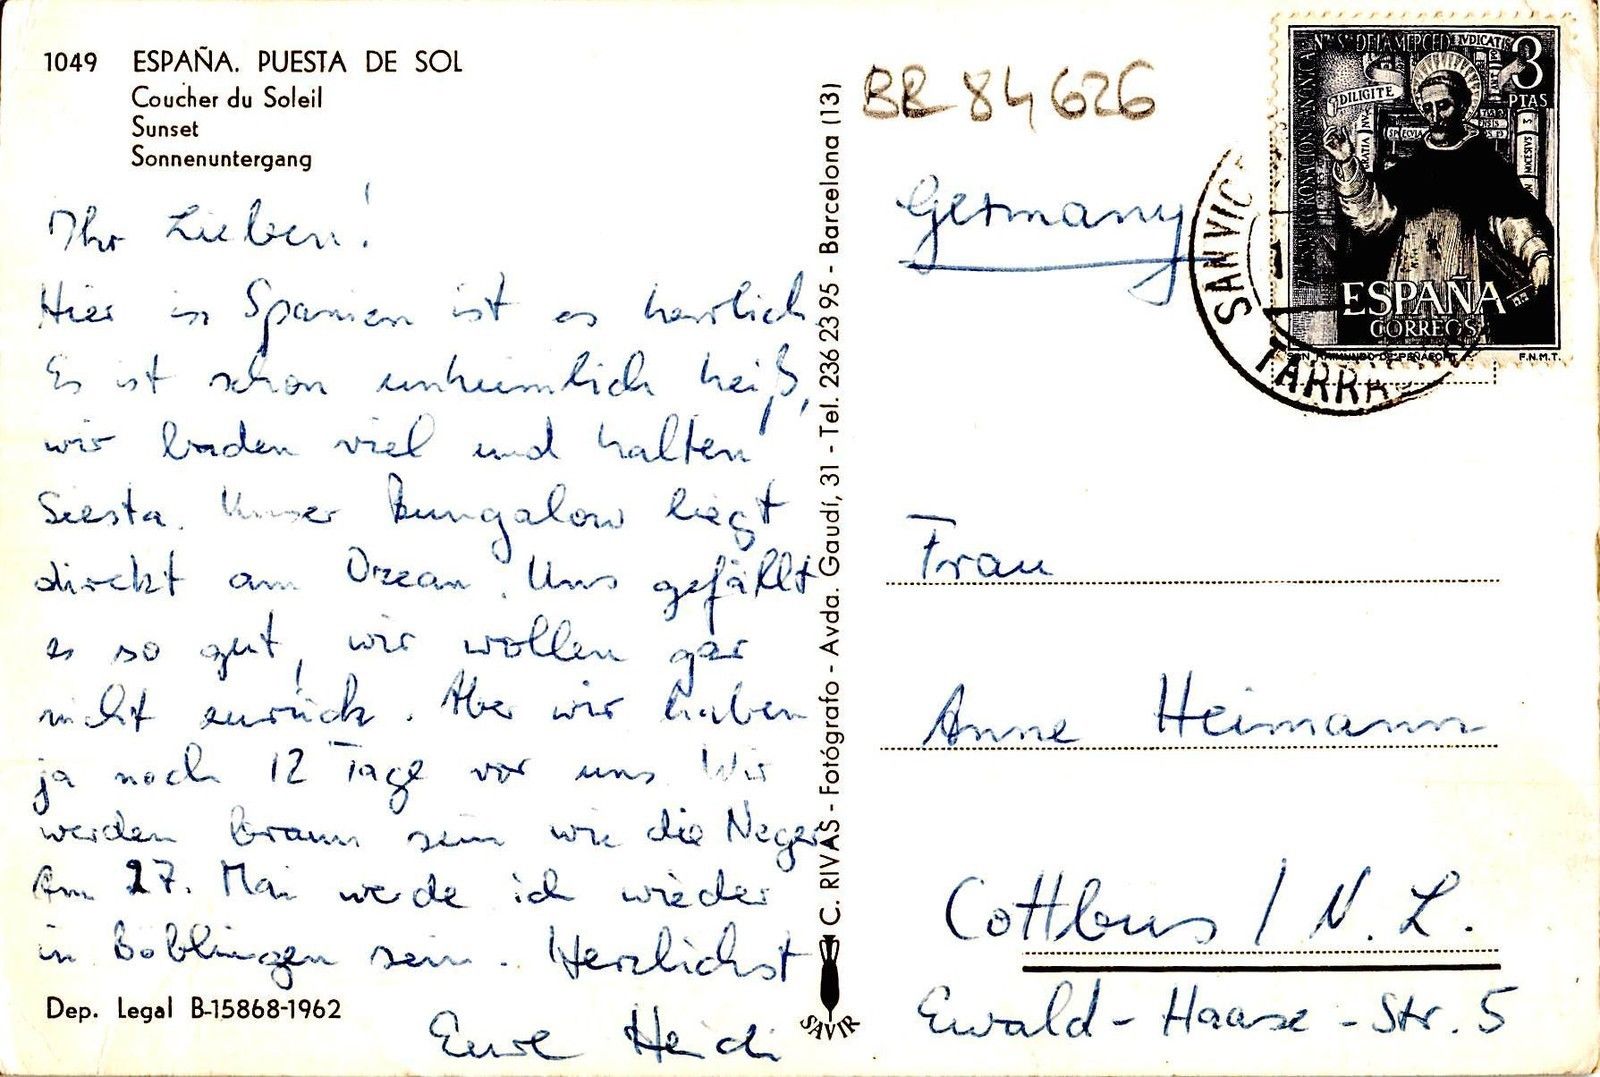 1049 ESPAÑA. PUESTA DE SOL
Coucher du Soleil
Sunset
Sonnenuntergang
Ihr Lieben!
Hier in Spanien ist es herrlich
Es ist schon unheimlich heiß,
wir baden viel und halten
Siesta. Unser Bungalow liegt
direkt am Ozean. Uns gefällt
es so gut, wir wollen gar
nicht zurück. Aber wir haben
ja noch 12 Tage vor uns. Wir
werden braun sein wie die Neger
Am 27. Mai werde ich wieder
in Böblingen sein. Herzlichst
Eure Heidi
Dep. Legal B-15868-1962
C. RIVAS - Fotógrafo - Avda. Gaudí, 31 - Tel. 236 23 95 - Barcelona (13)
SAVIR
BR 84626
Germany
Nª Sª DE LA MERCED
CORONACION CANONICA
JVDICATIS
DILIGITE
3
PTAS
ESPAÑA
CORREOS
SAN RAIMUNDO DE PEÑAFORT
F.N.M.T.
SAN VIC
TARRA
Frau
Anne Heimann
Cottbus / N. L.
Ewald-Haase-Str. 5